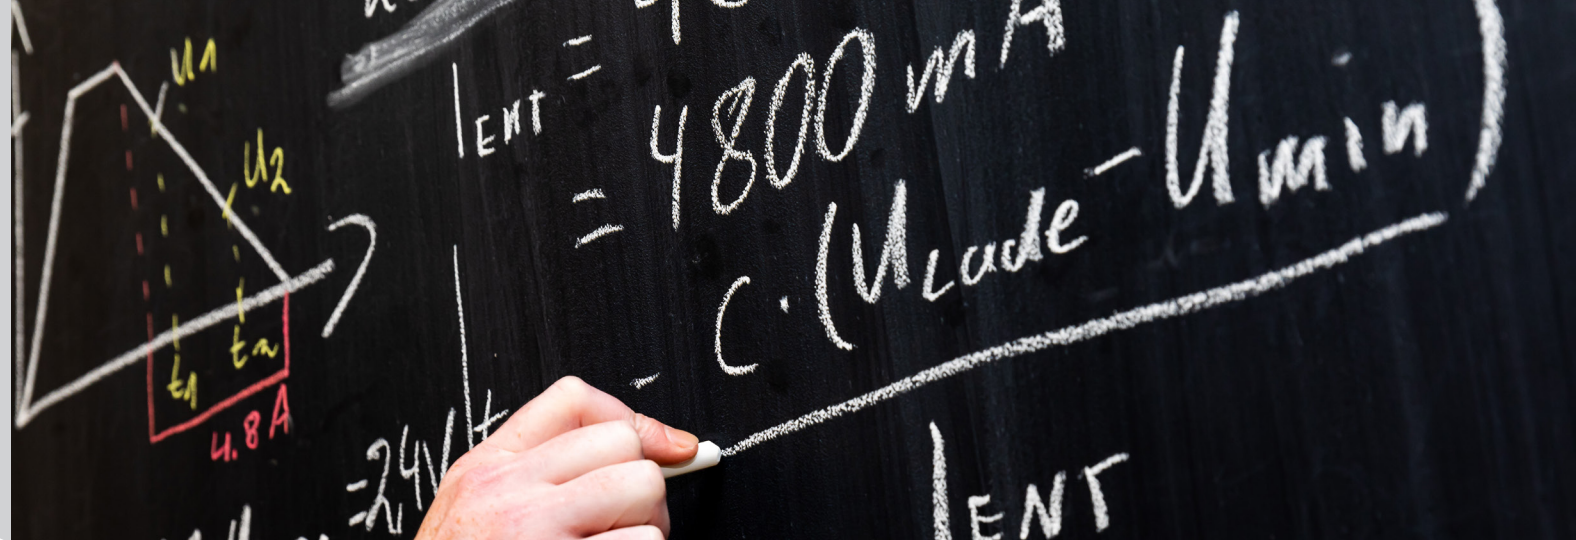 U1
U2
t1
t2
4.8 A
I ENT =
= 4800 mA
C · (U Lade − U min)
I ENT
= 24V
t